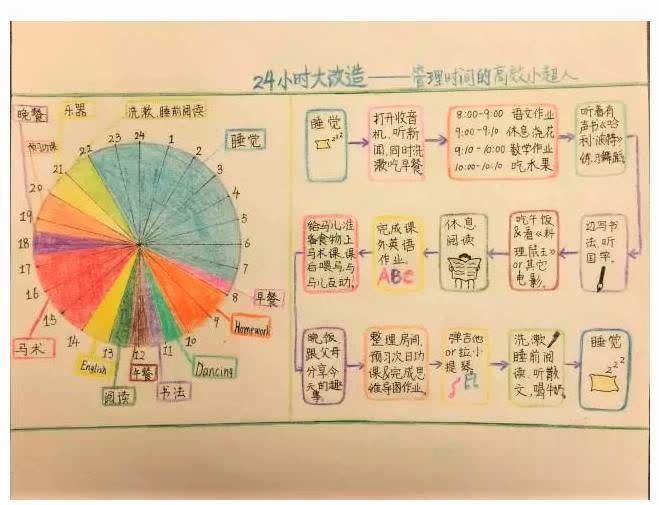 24小时大改造——管理时间的高效小超人
晚餐
乐器
洗漱、睡前阅读
预习功课
睡觉
24
1
2
3
4
5
6
7
8
9
10
11
12
13
14
15
16
17
18
19
20
21
22
23
早餐
Homework
Dancing
书法
午餐
阅读
English
马术
睡觉
zzz
打开收音
机,听新
闻,同时洗
漱吃早餐.
8:00-9:00 语文作业
9:00-9:10 休息,浇花
9:10-10:00 数学作业
10:00-10:10 吃水果
听着有
声书《哈
利·波特》
练习舞蹈.
边写书
法,听
国学.
吃午饭
&看《料
理鼠王》
or其它
电影.
休息
阅读
完成课
外英语
作业.
ABC
给马儿准
备食物,上
马术课,课
后喂马,与
马儿互动.
晚饭
跟父母
分享今
天的趣
事.
整理房间,
预习次日功
课&完成思
维导图作业.
弹吉他
or拉小
提琴.
洗漱,
睡前阅
读,听散
文,喝牛奶.
睡觉
zzz